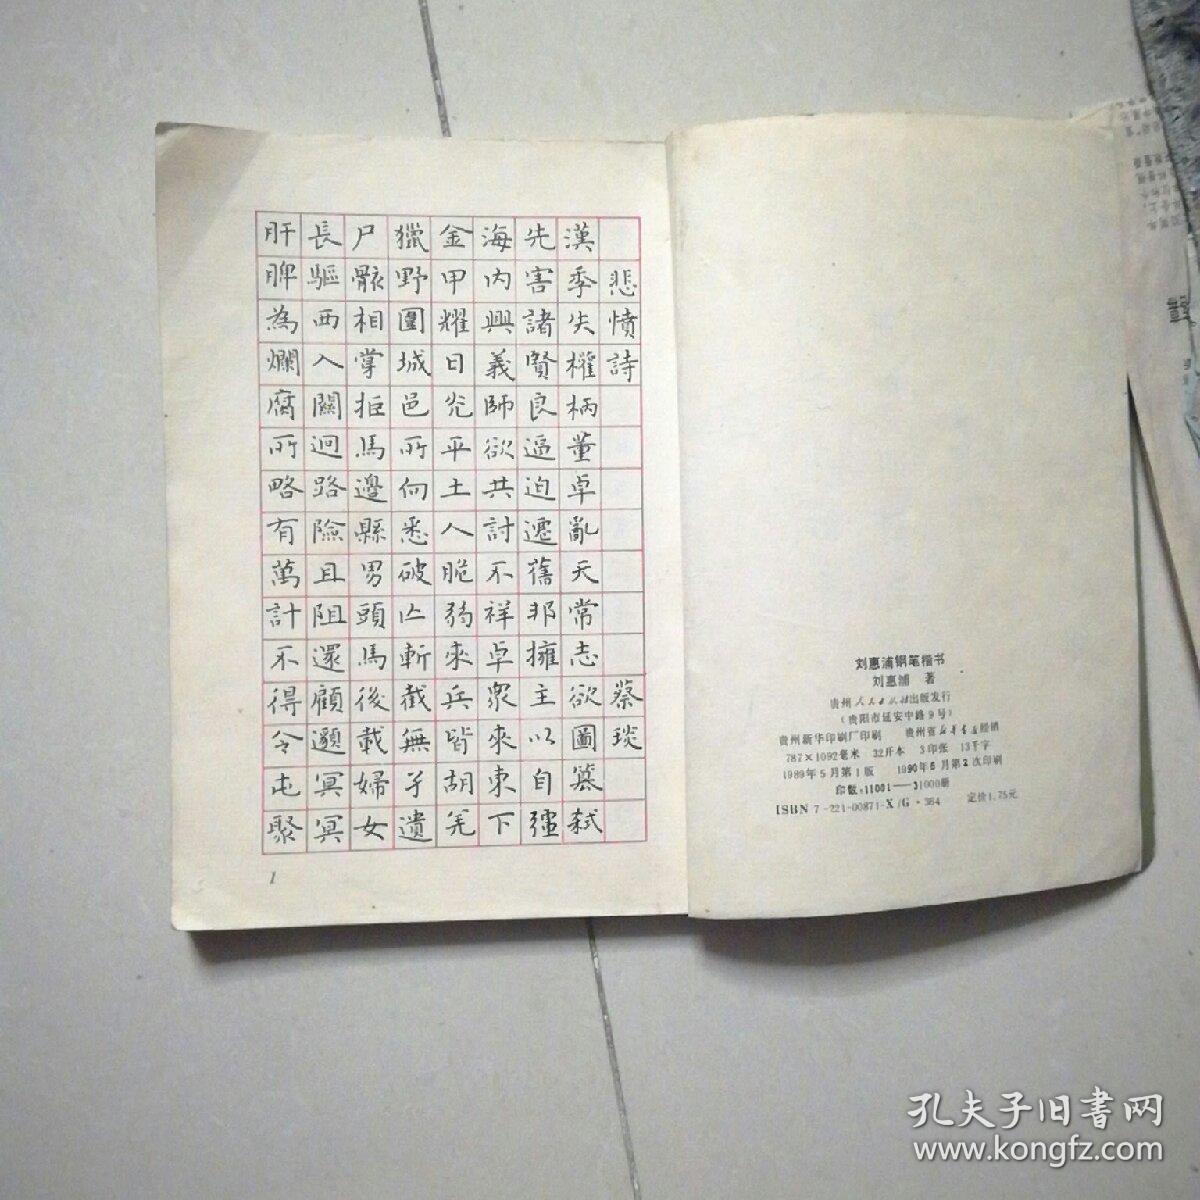 悲憤詩 蔡琰
漢季失權柄董卓亂天常志欲圖篡弒
先害諸賢良逼迫遷舊邦擁主以自彊
海内興義師欲共討不祥卓衆來東下
金甲耀日光平土人脆弱來兵皆胡羌
獵野圍城邑所向悉破亡斬截無孑遺
尸骸相掌拒馬邊縣男頭馬後載婦女
長驅西入關迥路險且阻還顧邈冥冥
肝脾為爛腐所略有萬計不得令屯聚
1
刘惠浦钢笔楷书
刘惠浦 著
贵州人民出版社出版发行
(贵阳市延安中路9号)
贵州新华印刷厂印刷 贵州省新华书店经销
787×1092毫米 32开本 3印张 13千字
1989年5月第1版 1990年6月第2次印刷
印数:11001—31000册
ISBN 7-221-00871-X/G·364 定价1.75元
孔夫子旧书网
www.kongfz.com